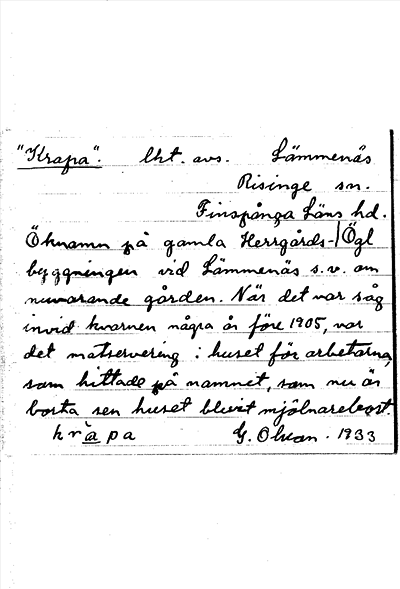 "Krapa". lht. avs. Lämmenäs
Risinge sn.
Finspånga Läns hd.
Öknamn på gamla Herrgårds-| Ögl
byggningen vid Lämmenäs s.v. om
nuvarande gården. När det var såg
invid kvarnen några år före 1905, var
det matservering i huset för arbetarna,
som hittade på namnet, som nu är
borta sen huset blivit mjölnarebost.
kràpa G. Olson. 1933